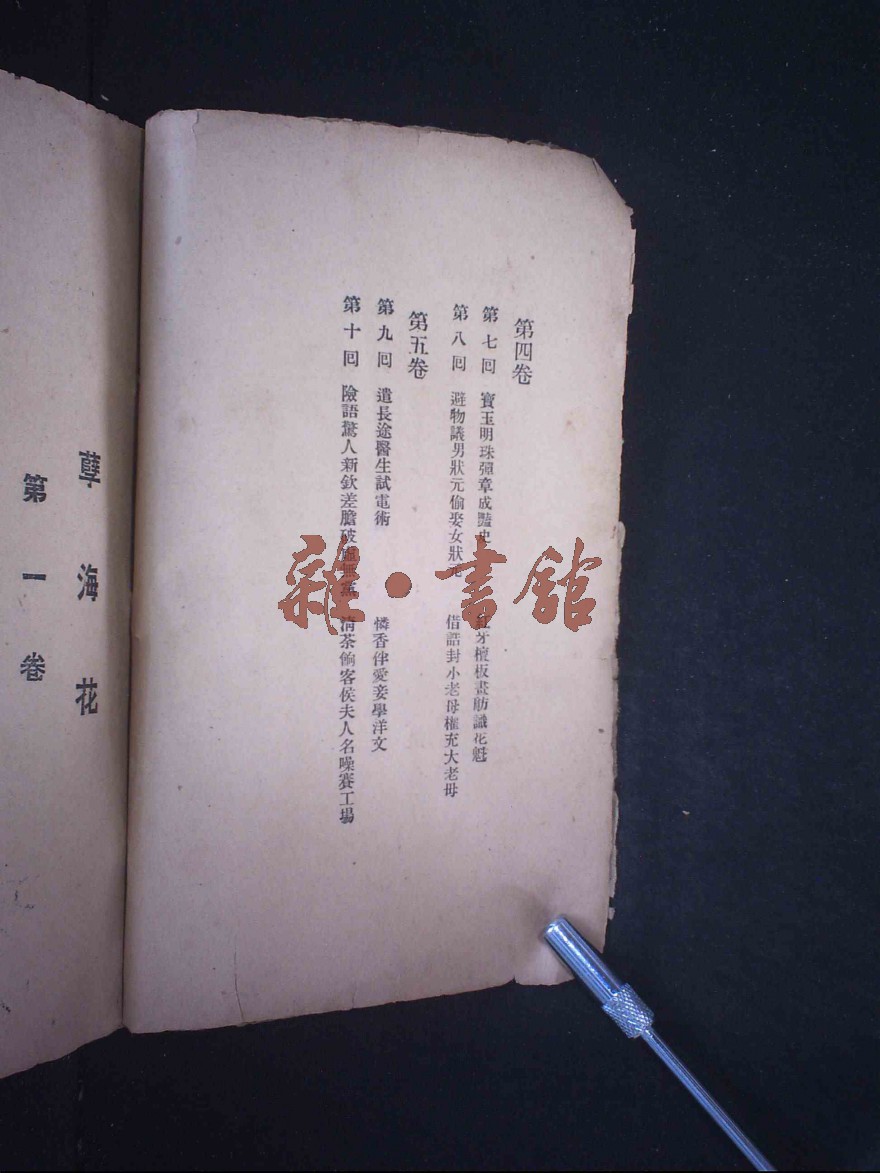 第四卷
第七回 寶玉明珠彈章成豔史 紅牙檀板畫舫識花魁
第八回 避物議男狀元偷娶女狀元 借誥封小老母權充大老母
第五卷
第九回 遣長途醫生試電術 憐香伴愛妾學洋文
第十回 險語驚人新欽差膽破虛無黨 清茶餉客侯夫人名噪賽工場
孽海花
第一卷
雜·書館